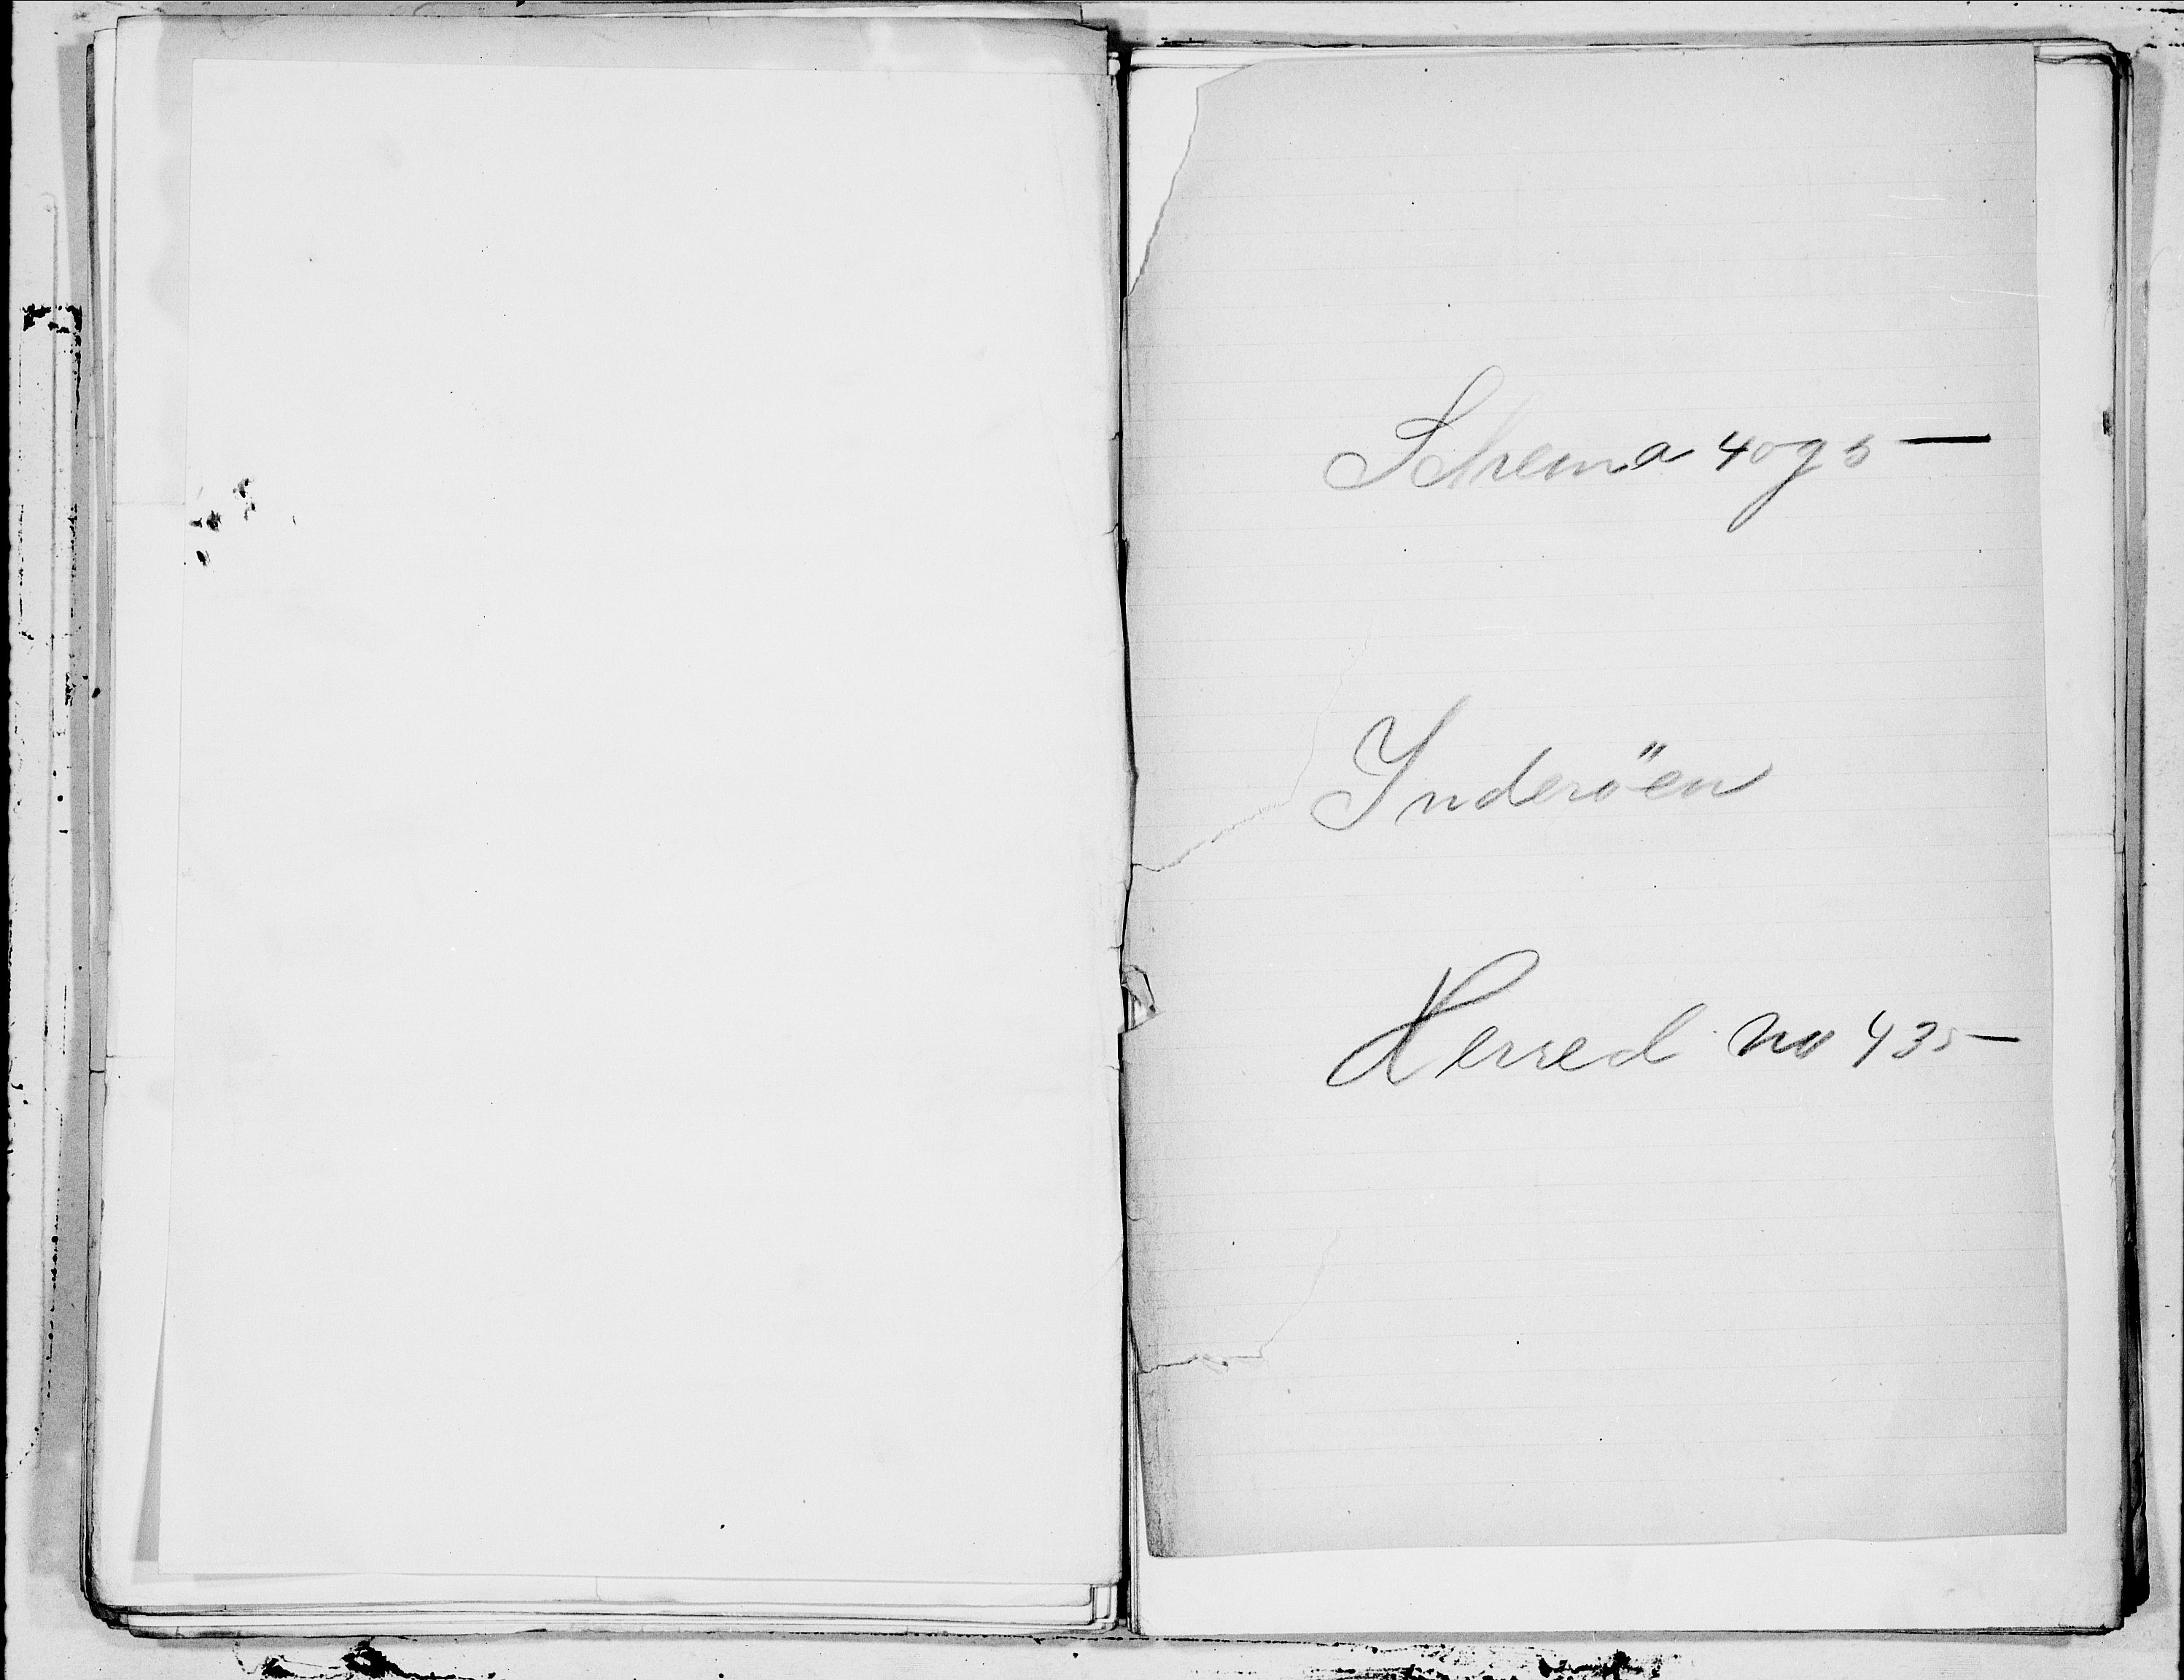 Skema 4 og 5
Inderöen
Herred no 435